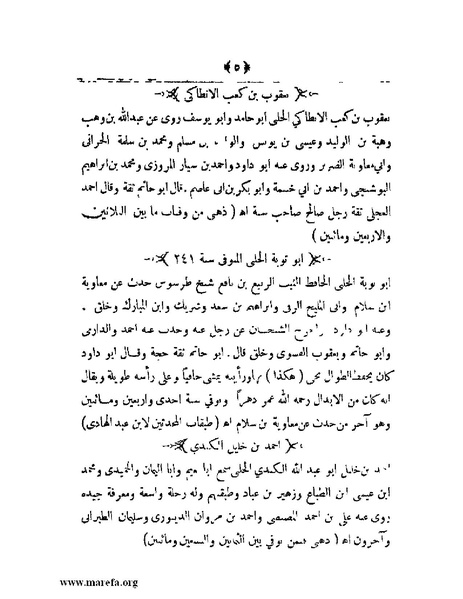 ﴿ ٥ ﴾
يعقوب بن كعب الانطاكي
يعقوب بن كعب الانطاكي الحلبي ابو حامد وابو يوسف روى عن عبدالله بن وهب
وهبة بن الوليد وعيسى بن يونس والوليد بن مسلم ومحمد بن سلمة الحراني
وابي معاوية الضرير وروى عنه ابو داود واحمد بن سيار المروزي ومحمد بن ابراهيم
البوشنجي واحمد بن ابي خيثمة وابو بكر بن ابى عاصم . قال ابو حاتم ثقة وقال احمد
العجلي ثقة رجل صالح صاحب سنة اه ( ذهبي من وفيات ما بين الثلاثين
والاربعين ومائتين )
ابو توبة الحلبي المتوفى سنة ٢٤١
ابو توبة الحلبي الحافظ الثبت الربيع بن نافع شيخ طرسوس حدث عن معاوية
ابن سلام وابي المليح الرقي وابراهيم بن سعد وشريك وابن المبارك وخلق .
وعنه ابو داود الشيخان عن رجل عنه وحدث عنه احمد والدارمى
وابو حاتم ويعقوب الفسوي وخلق قال . ابو حاتم ثقة حجة وقال ابو داود
كان يحفظ الطوال يجي ( هكذا ) ورأيته يمشى حافياً وعلى رأسه طويلة ويقال
انه كان من الابدال رحمه الله عمر دهراً وتوفي سنة احدى واربعين ومائتين
وهو آخر من حدث عن معاوية بن سلام اه ( طبقات المحدثين لابن عبد الهادى )
احمد بن خليل الكندي
بن خليل ابو عبد الله الكندي الحلبي سمع ابا نعيم وابا اليمان والحميدى ومحمد
ابن عيسى ابن الطباع وزهير بن عباد وطبقتهم وله رحلة واسعة ومعرفة جيده
روى عنه علي بن احمد المصيصي واحمد بن مروان الدينورى وسليمان الطبراني
وآخرون اه ( ذهبي فيمن توفي بين الثمانين والتسعين ومائتين )
www.marefa.org